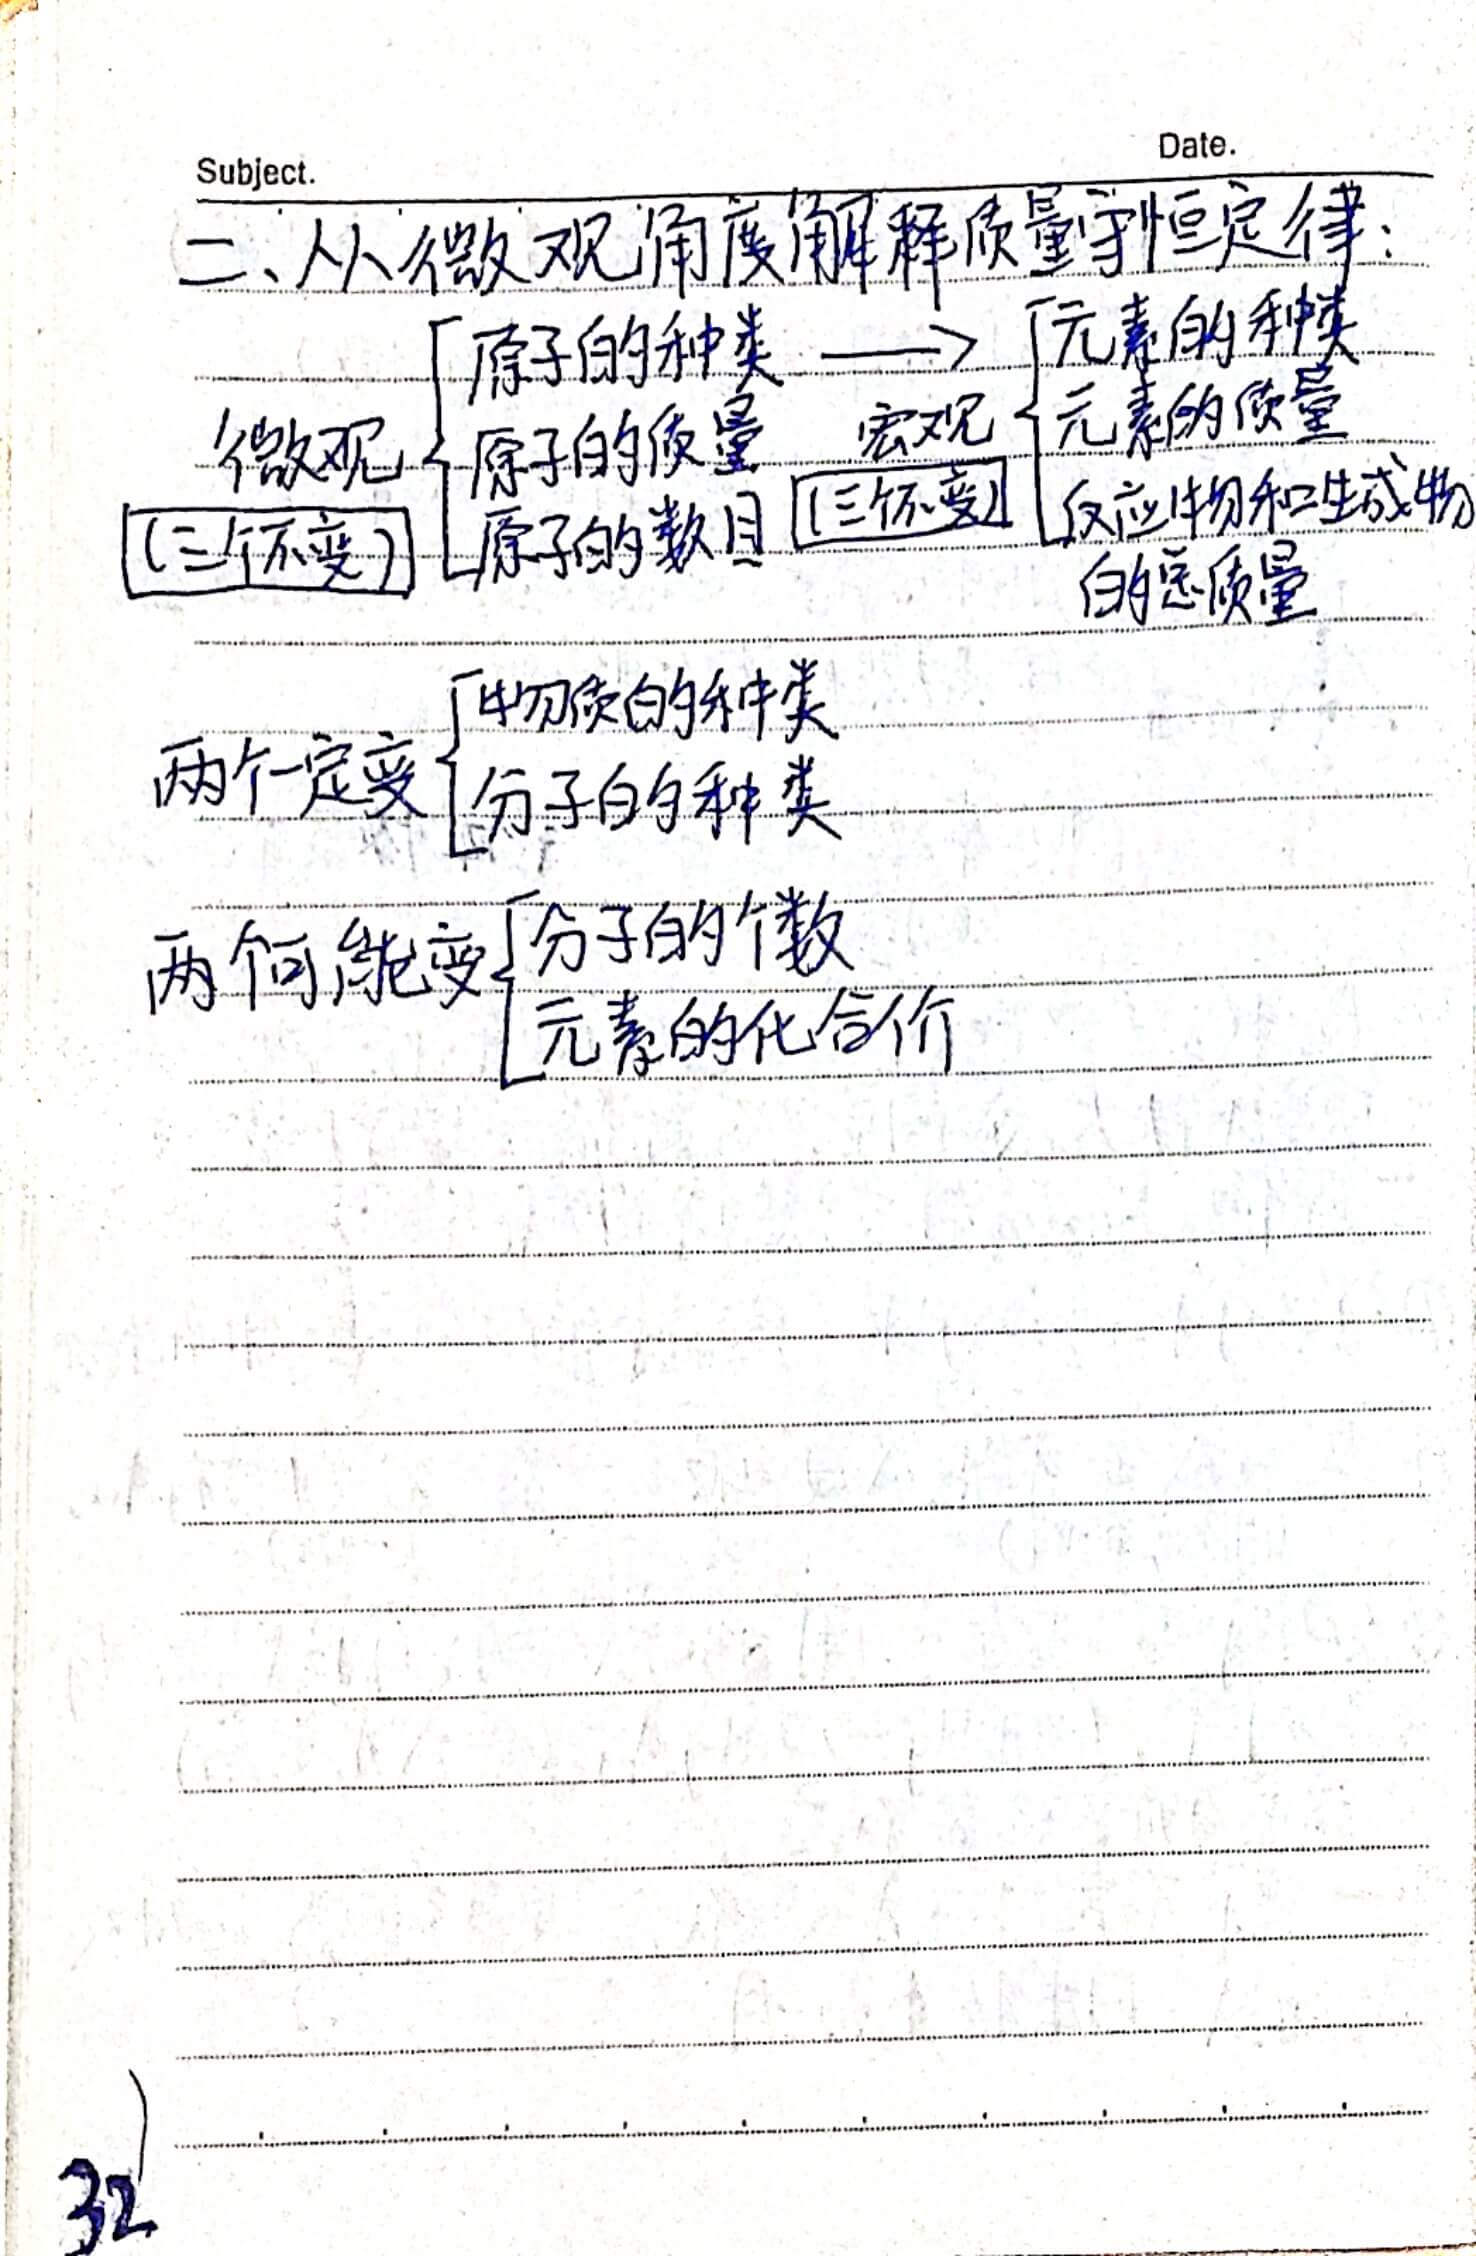 Subject.
Date.
二、从微观角度解释质量守恒定律:
微观
(三个不变)
原子的种类
原子的质量
原子的数目
宏观
(三个不变)
元素的种类
元素的质量
反应物和生成物
的总质量
两个一定变
物质的种类
分子的种类
两个可能变
分子的个数
元素的化合价
32